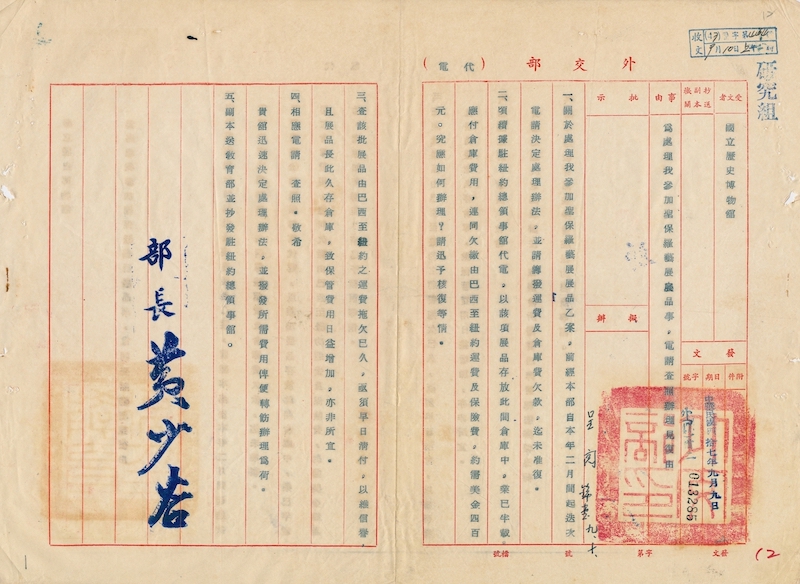 研究組
外交部（代電）
受文者
國立歷史博物館
抄送副本機關
事由
為處理我參加聖保羅藝展展品事，電請查照辦理見復由
批示
擬辦
發文
附件
日期
字號
中華民國四拾七年九月九日
013285
一、關於處理我參加聖保羅藝展展品乙案，前經本部自本年二月間起迭次
電請決定處理辦法，並請籌撥運費及倉庫費欠款，迄未准復。
二、項續據駐紐約總領事館代電，以該項展品存放此間倉庫中，業已半載，
應付倉庫費用，連同欠繳由巴西至紐約運費及保險費，約需美金四百
元。究應如何辦理？請迅予核復等情。
三、查該批展品由巴西至紐約之運費拖欠已久，亟須早日清付，以維信譽，
且展品長此久存倉庫，致保管費用日益增加，亦非所宜。
四、相應電請　查照，敬希
貴館迅速決定處理辦法，並撥發所需費用俾便轉飭辦理為荷。
五、副本送教育部並抄發駐紐約總領事館。
部長 黃少谷
發文　字第　號
檔號